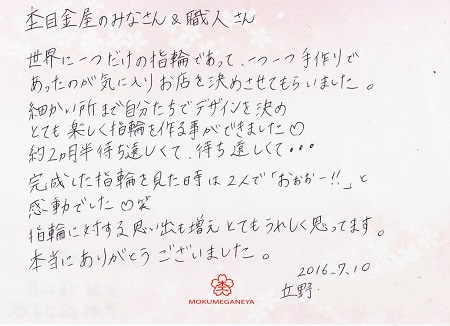 杢目金屋のみなさん&職人さん
世界に一つだけの指輪であって、一つ一つ手作りで
あったのが気に入りお店を決めさせてもらいました。
細かい所まで自分たちでデザインを決め
とても楽しく指輪を作る事ができました♡
約2ヵ月半待ち遠しくて、待ち遠しくて・・・
完成した指輪を見た時は2人で「おぉぉー!!」と
感動でした♡笑
指輪に対する思い出も増えとてもうれしく思ってます。
本当にありがとうございました。
2016.7.10
立野
MOKUMEGANEYA